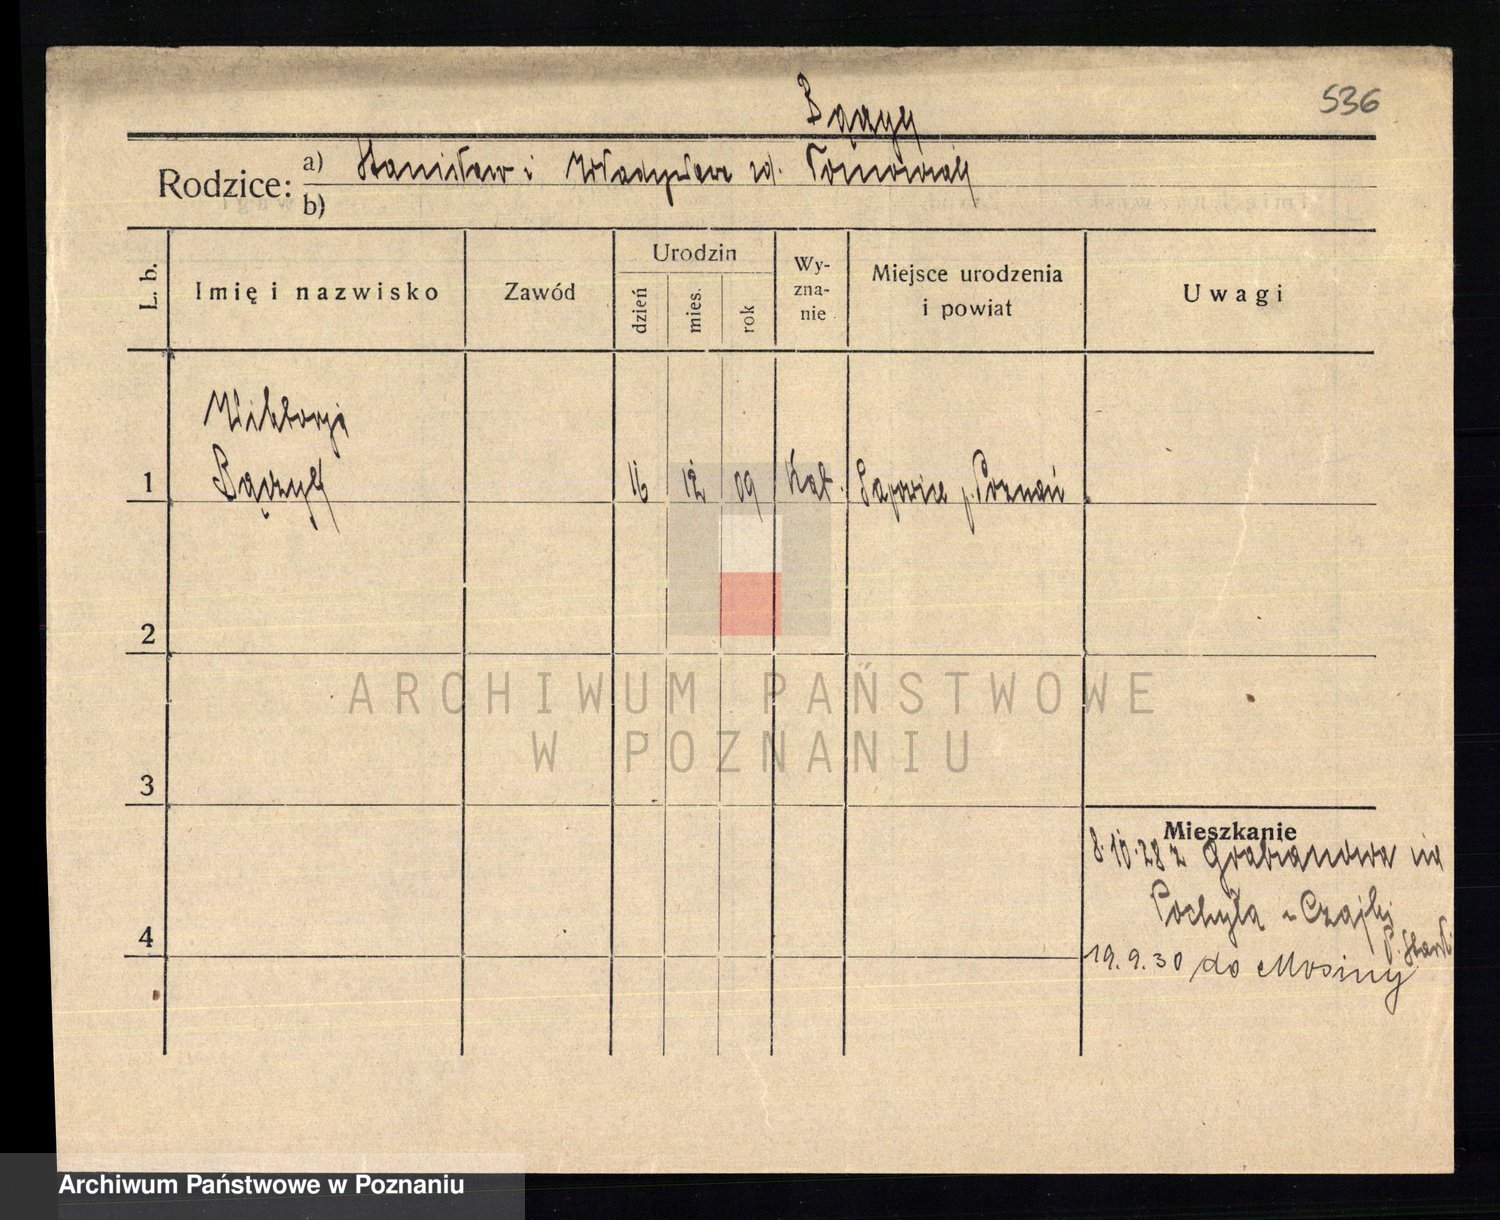 536
Bączyk
Rodzice: a) Stanisław i Władysława zd.
b)
L. b.
Imię i nazwisko
Zawód
Urodzin
dzień
mies.
rok
Wy-
zna-
nie
Miejsce urodzenia
i powiat
Uwagi
Wiktorja
1 Bączyk 16 12 09 Kat. Sapowice p. Poznań
2
3
4
Mieszkanie
8.10.28 z Grabianowa na
Pochyła u Czajki
19.9.30 do Mosiny
ARCHIWUM PAŃSTWOWE
W POZNANIU
Archiwum Państwowe w Poznaniu